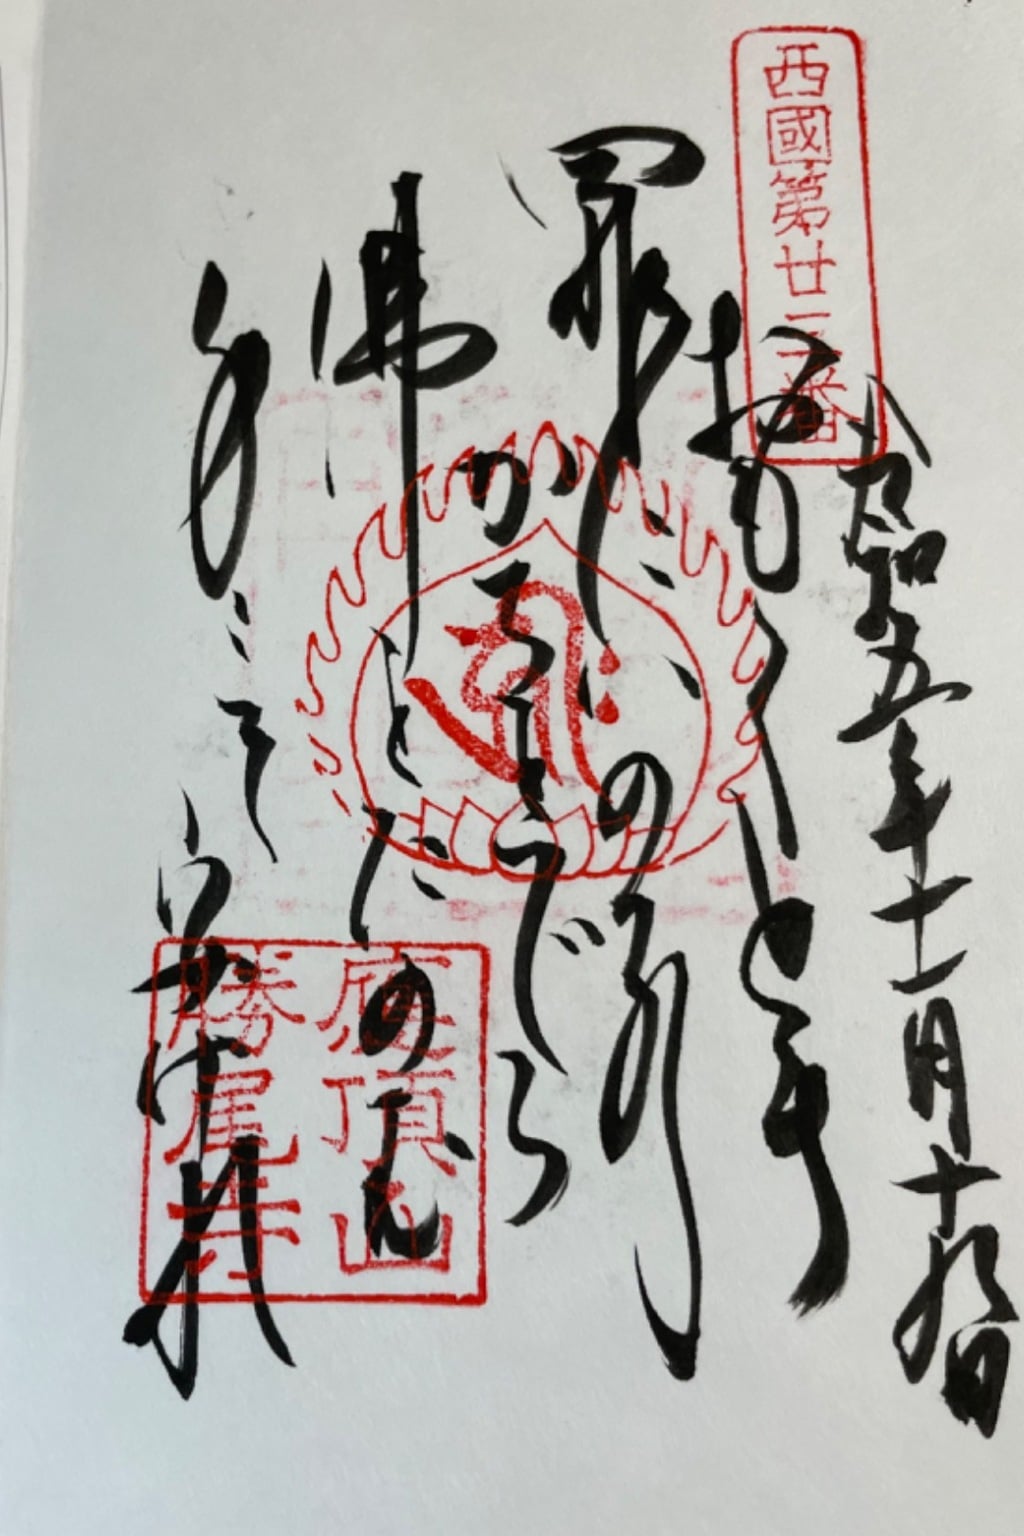 西國第廿三番
令和五年十一月十九日
おもくとも
罪にハのりの
かちをでら
佛をたのむ
身こそやすけれ
應頂山
勝尾寺